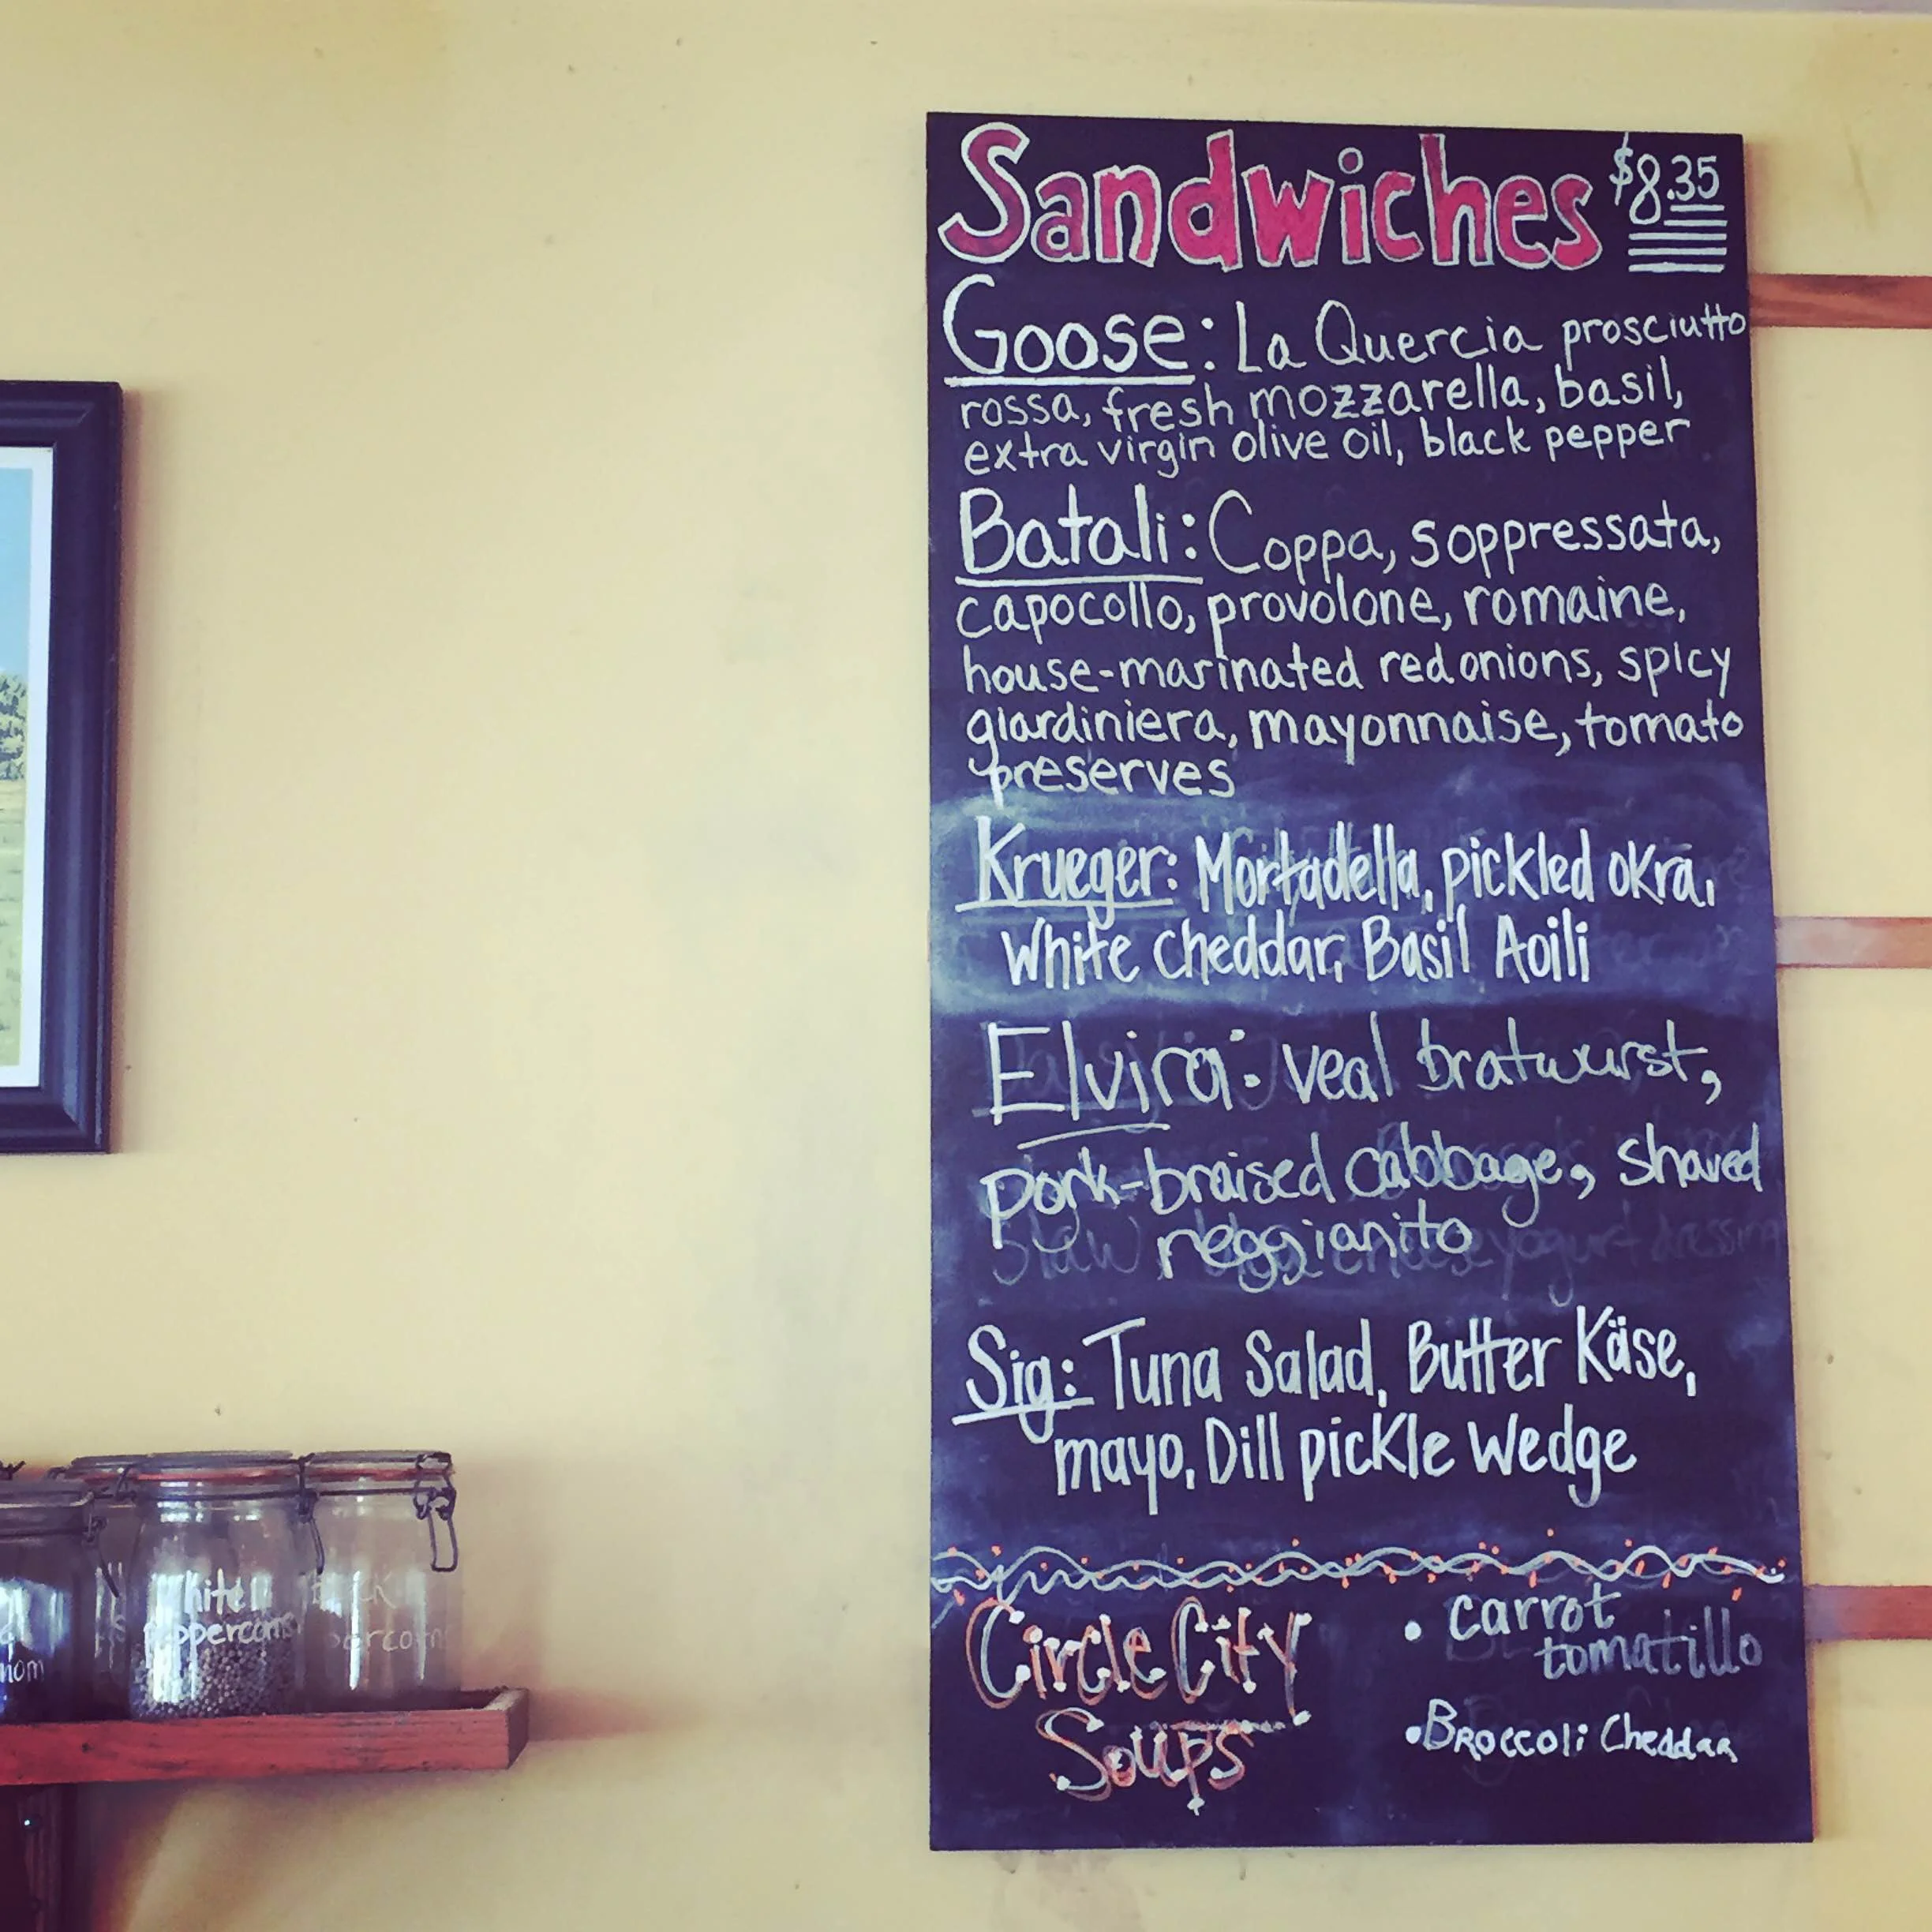 Sandwiches $8.35
Goose: La Quercia prosciutto
rossa, fresh mozzarella, basil,
extra virgin olive oil, black pepper
Batali: Coppa, soppressata,
capocollo, provolone, romaine,
house-marinated red onions, spicy
giardiniera, mayonnaise, tomato
preserves
Krueger: Mortadella, pickled okra,
White cheddar, Basil Aoili
Elvira: veal bratwurst,
pork-braised cabbage, shaved
reggianito
Sig: Tuna Salad, Butter Käse,
mayo, Dill pickle Wedge
Circle City
Soups
• carrot
tomatillo
• Broccoli Cheddar
White
peppercorns